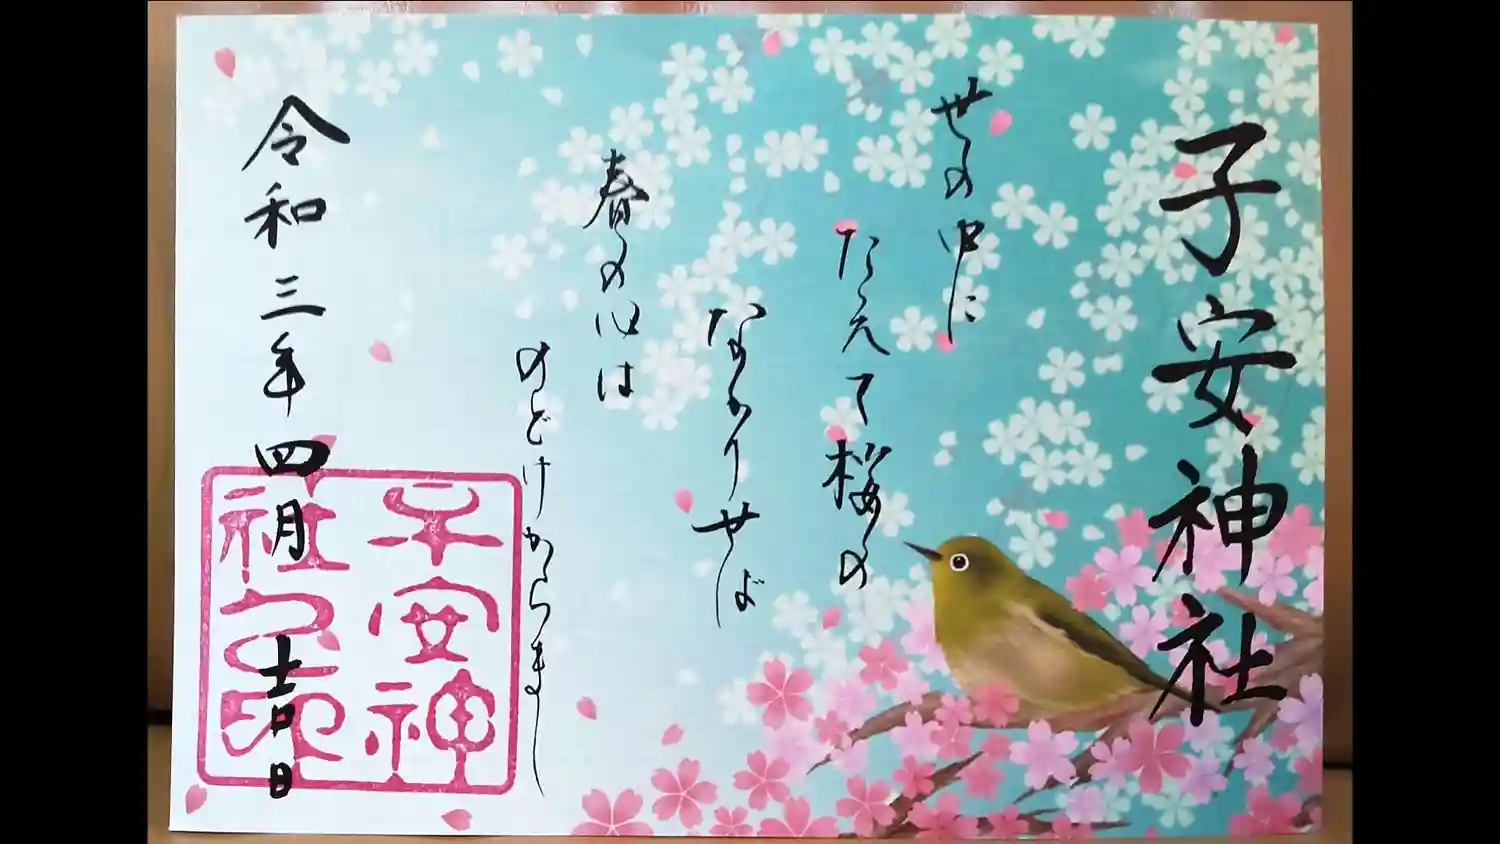 子安神社
世の中に
たえて桜の
なかりせば
春の心は
のどけからまし
令和三年四月吉日
子安神
社之印